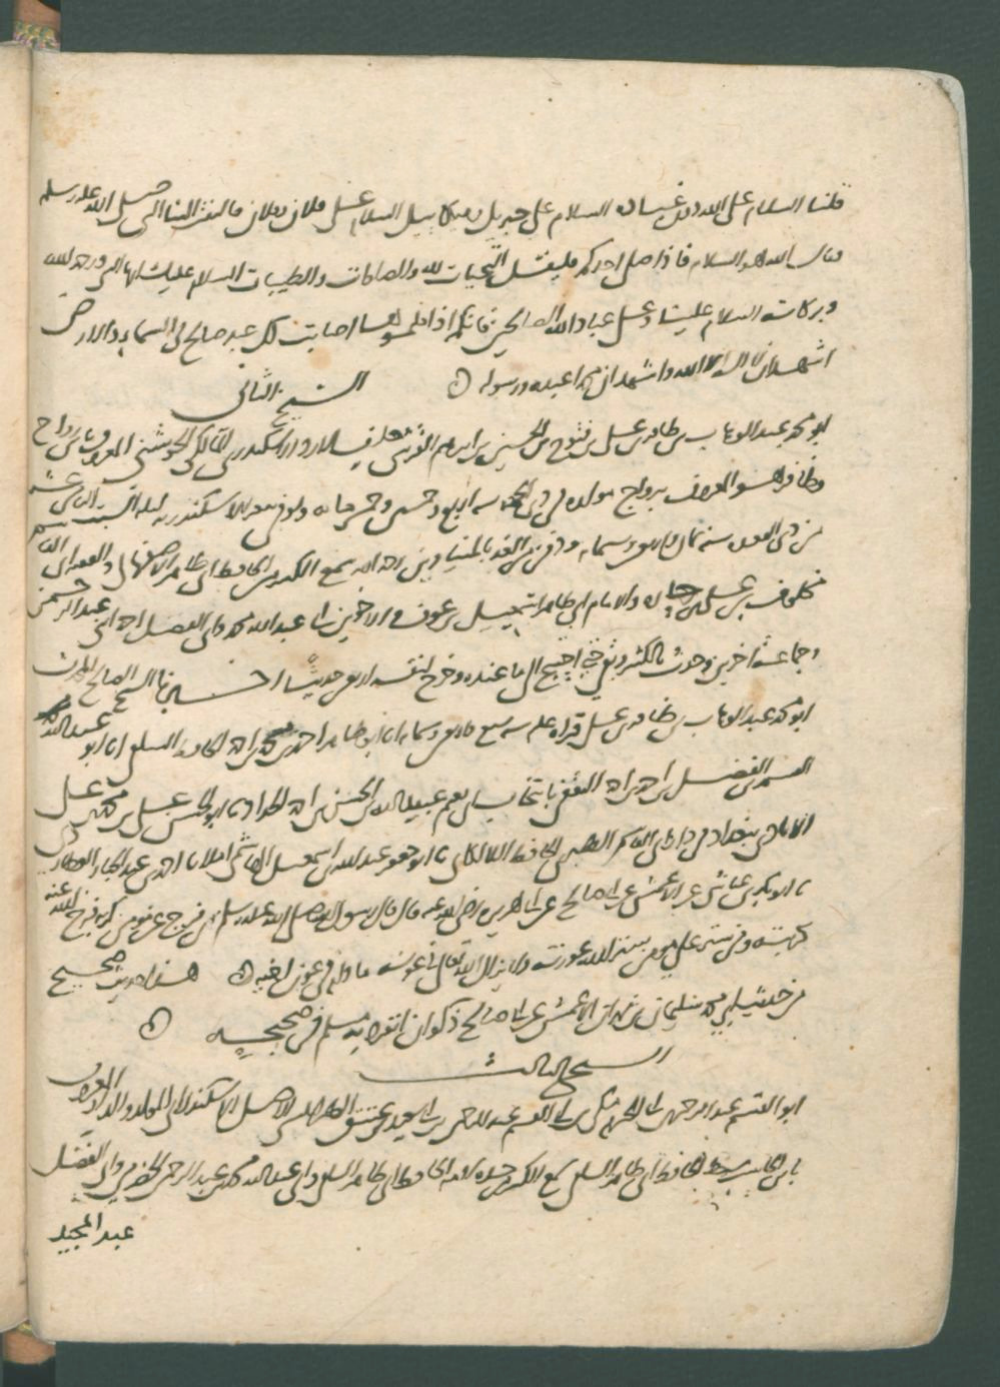 قلنا السلام على الله دون عباده السلام على جبريل وميكائيل السلام على فلان وفلان فالتفت الينا النبي صلى الله عليه وسلم
وقال ان الله هو السلام فاذا صلى احدكم فليقل التحيات لله والصلوات والطيبات السلام عليك ايها النبي ورحمة الله
وبركاته السلام علينا وعلى عباد الله الصالحين فانكم اذا قلتموها اصابت كل عبد صالح في السماء والارض
اشهد ان لا اله الا الله واشهد ان محمدا عبده ورسوله
الشيخ الثاني
ابو محمد عبد الوهاب بن ظافر بن علي بن فتوح بن الحسين بن ابراهيم القرشي الاسكندري المالكي المعروف بابن رواج
وظافر هو المعروف برواج مولده في سنة اربع وخمسين وخمسمائة وتوفي بثغر الاسكندرية ليلة السبت الثامن عشر
من ذي القعدة سنة ثمان واربعين وستمائة ودفن من الغد رحمه الله سمع الكثير من الحافظ ابي طاهر الاصفهاني
مخلوف بن علي بن جارة والامام ابي طاهر اسمعيل بن عوف والاخوين ابي عبد الله محمد وابي الفضل احمد ابني عبد الرحمن
وجماعة اخرين وحدث بالكثير وخرج لنفسه اربعين حديثا اخبرنا الشيخ الصالح
ابو محمد عبد الوهاب بن ظافر بن علي قراءة عليه سنة سبع واربعين وستمائة انا ابو طاهر احمد بن محمد بن احمد الحافظ السلفي انا ابو عبد الله
القسم بن الفضل بن احمد بن احمد الثقفي بانتخاب ابي نعيم عبيد الله بن الحسن بن احمد الحداد نا ابو الحسين علي بن محمد بن علي
ببغداد الحافظ اللالكائي نا ابو جعفر عبد الله بن اسمعيل الهاشمي املاء نا احمد بن عبد الجبار العطاردي
نا ابو بكر بن عياش عن الاعمش عن ابي صالح عن ابي هريرة رضي الله عنه قال قال رسول الله صلى الله عليه وسلم من فرج عن مؤمن كربة فرج الله عنه
كربته ومن ستر على مؤمن ستر الله عورته ولا يزال الله تعالى في عونه ما دام في عون اخيه هذا حديث صحيح
من حديث ابي محمد سليمان بن مهران الاعمش عن ابي صالح ذكوان انفرد به مسلم في صحيحه
الشيخ الثالث
ابو القسم عبد الرحمن بن ابي الحرم مكي بن ابي القسم عبد الرحمن بن ابي سعيد بن عتيق الطرابلسي الاصل الاسكندراني المولد والدار المعروف
بابن الحاسب سبط الحافظ ابي طاهر السلفي سمع الكثير من جده لامه الحافظ ابي طاهر السلفي وابي عبد الله محمد بن عبد الرحمن الحضرمي وابي الفضل
عبد المجيد